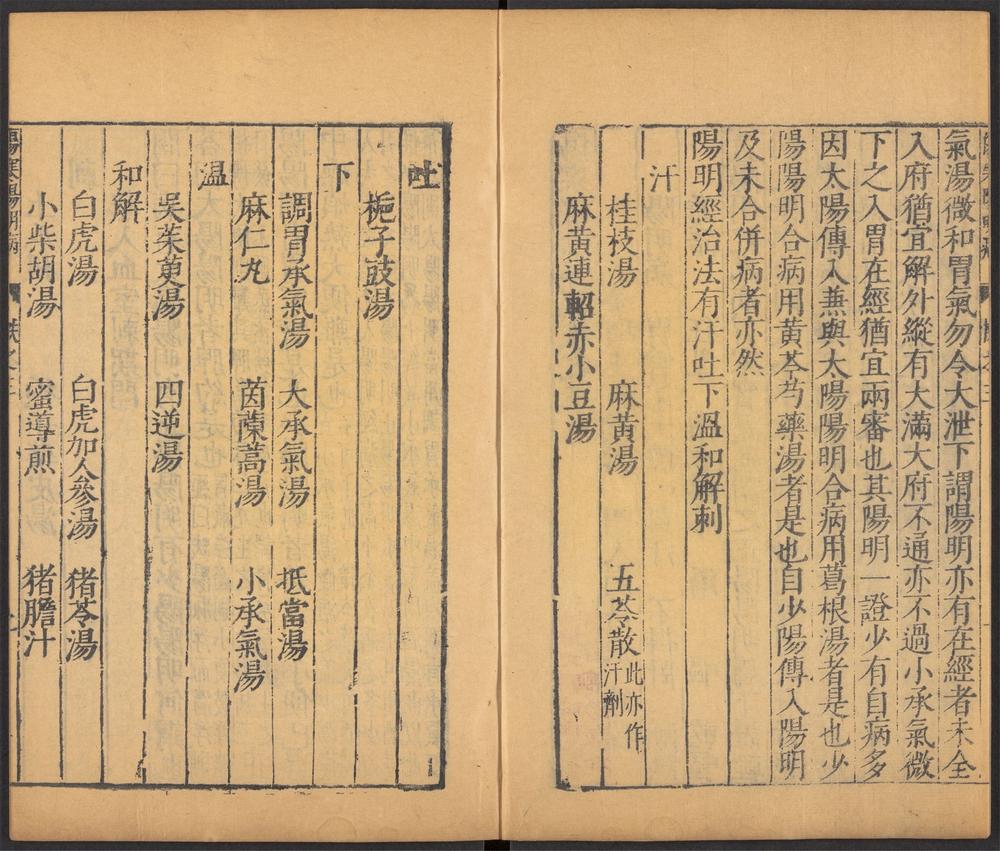 氣湯微和胃氣勿令大泄下謂陽明亦有在經者未全
入府猶宜解外縱有大滿大府不通亦不過小承氣微
下之入胃在經猶宜兩審也其陽明一證少有自病多
因太陽傳入兼與太陽陽明合病用葛根湯者是也少
陽陽明合病用黃芩芍藥湯者是也自少陽傳入陽明
及未合併病者亦然
陽明經治法有汗吐下溫和解刺
汗
桂枝湯 麻黃湯 五苓散 此亦作汗劑
麻黃連軺赤小豆湯
吐
梔子豉湯
下
調胃承氣湯 大承氣湯 抵當湯
麻仁丸 茵蔯蒿湯 小承氣湯
溫
吳茱萸湯 四逆湯
和解
白虎湯 白虎加人參湯 猪苓湯
小柴胡湯 蜜導煎 猪膽汁